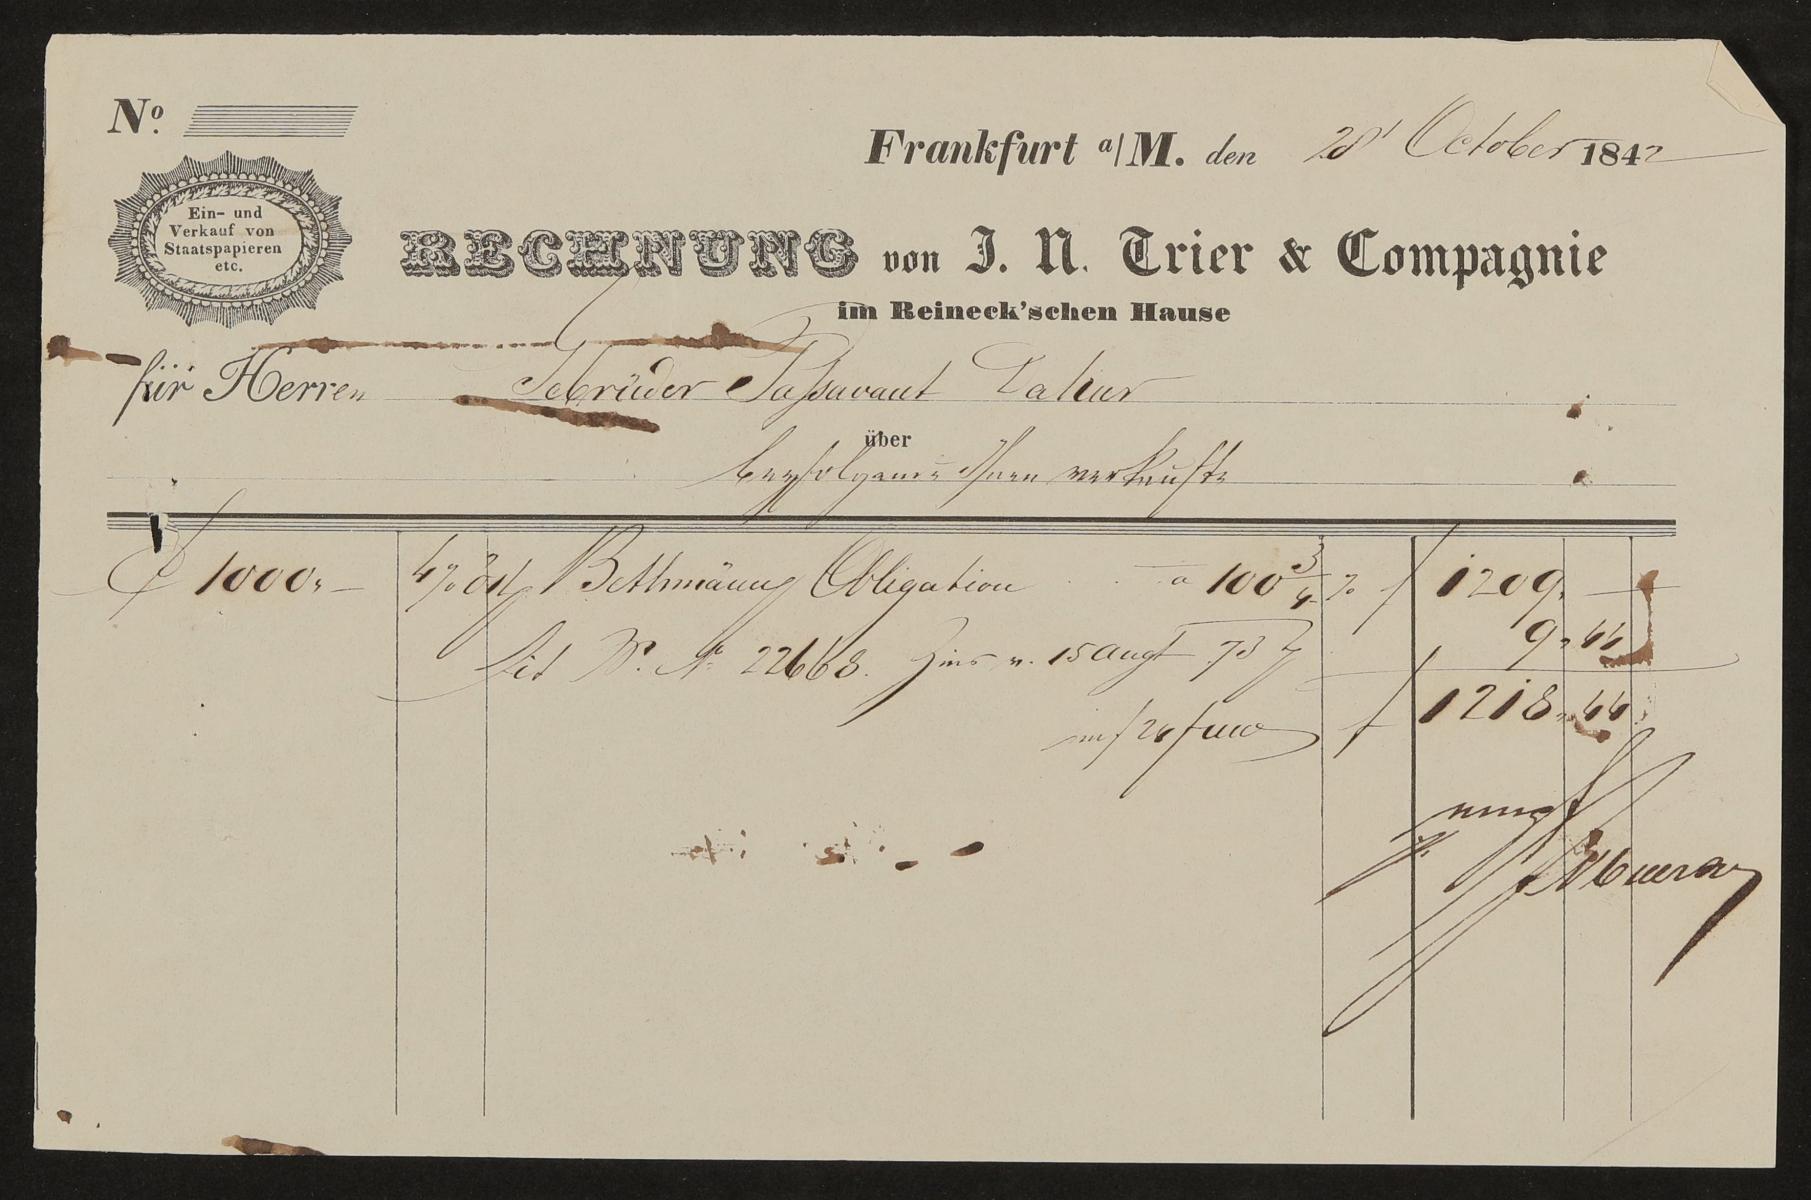 No.
Frankfurt a/M. den 28t October 1842
Ein- und
Verkauf von
Staatspapieren
etc.
RECHNUNG von J. N. Trier & Compagnie
im Reineck'schen Hause
für Herren Gebrüder Passavant Dahier
über
beyfolgende Ihnen verkaufte
f 1000 „ — 4% Bethmänng Obligation a 100 3/4 % f 1209 „ —
Lit No. 22668. Zins v. 15 Augt 73 9 „ 44
f 1218 „ 44